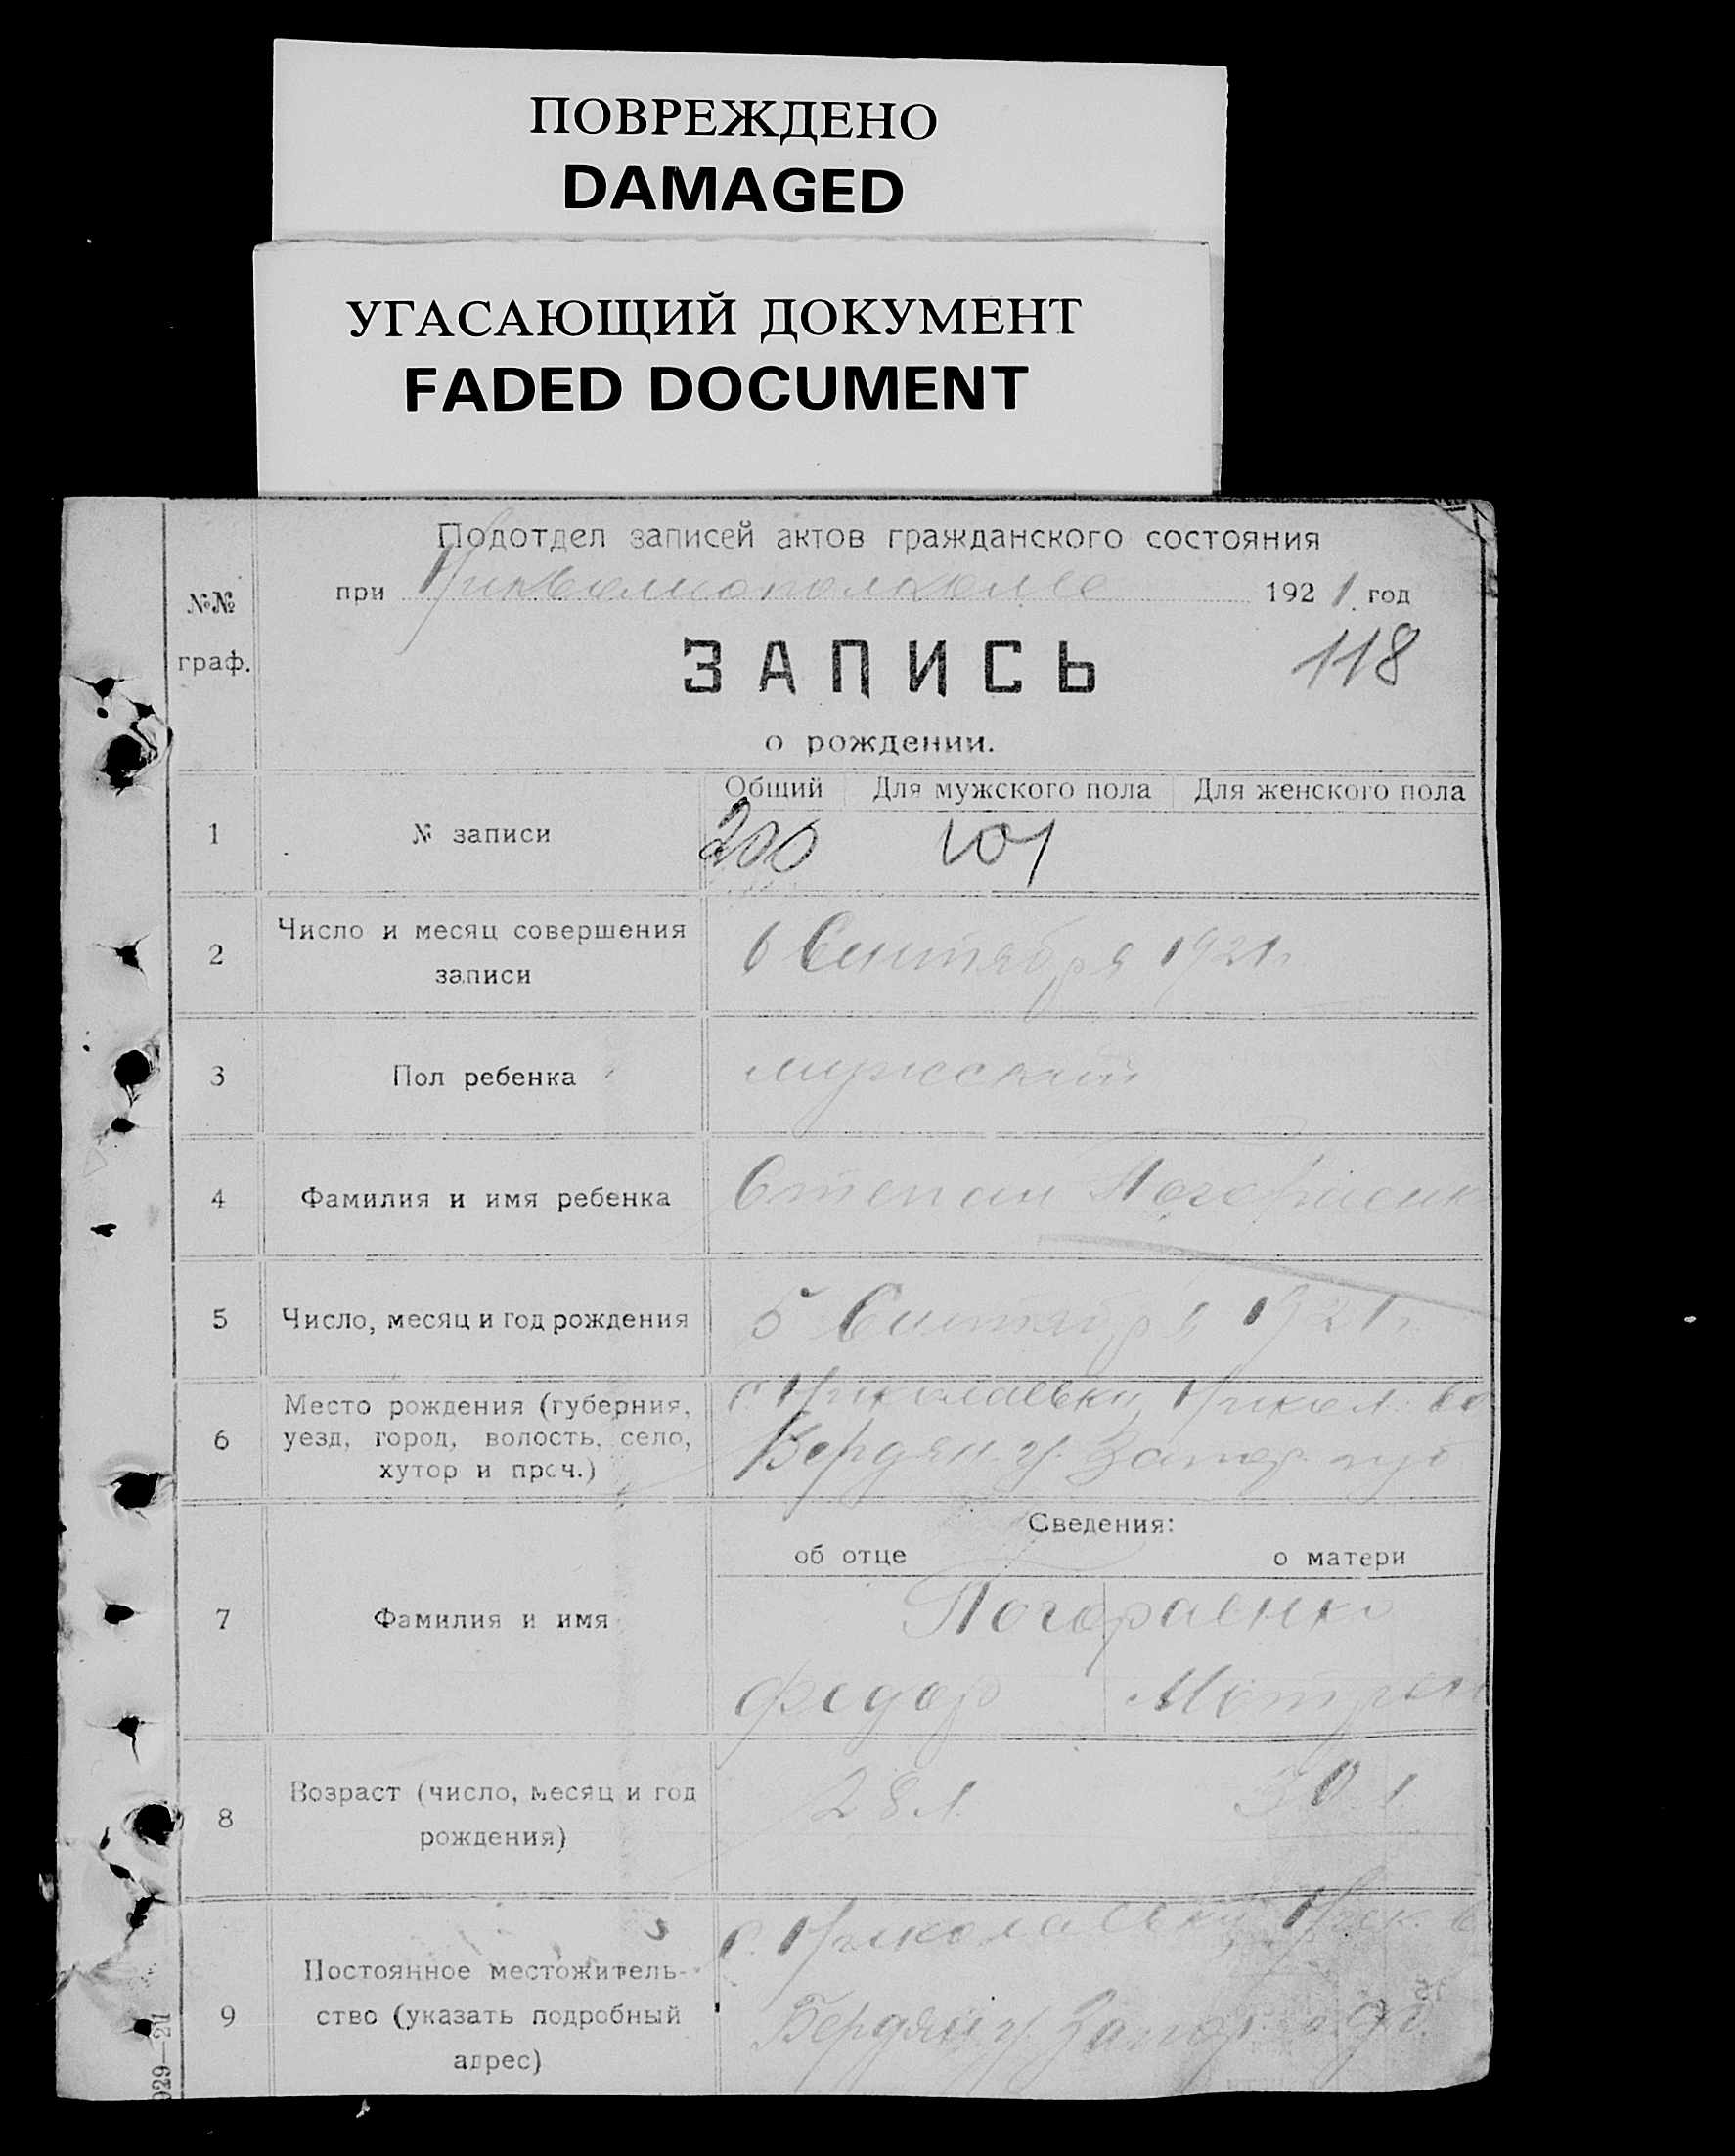 ПОВРЕЖДЕНО
DAMAGED
УГАСАЮЩИЙ ДОКУМЕНТ
FADED DOCUMENT
Подотдел записей актов гражданского состояния
при 1921 год
№№
граф.
ЗАПИСЬ
118
о рождении.
Общий Для мужского пола Для женского пола
1 № записи 200 101
2 Число и месяц совершения
записи
6 Сентября 1921 г.
3 Пол ребенка мужской
4 Фамилия и имя ребенка Степан
5 Число, месяц и год рождения 5 Сентября 1921 г.
6 Место рождения (губерния,
уезд, город, волость, село,
хутор и проч.)
с. Николаевки, Никол. во
Бердян. у. Запор. губ
Сведения:
об отце о матери
7 Фамилия и имя
Федор
8 Возраст (число, месяц и год
рождения)
28 л. 30 л
9 Постоянное местожитель-
ство (указать подробный
адрес)
с. Николаевки
Бердян у. Запор.
929—21